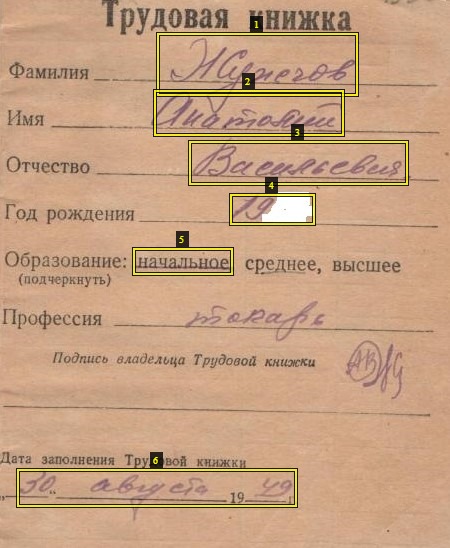 Трудовая книжка
Фамилия
Имя Анатолий
Отчество Васильевич
Год рождения 19
Образование: начальное среднее, высшее
(подчеркнуть)
Профессия токарь
Подпись владельца Трудовой книжки
Дата заполнения Трудовой книжки
„30“ августа 1949 г.
1
2
3
4
5
6